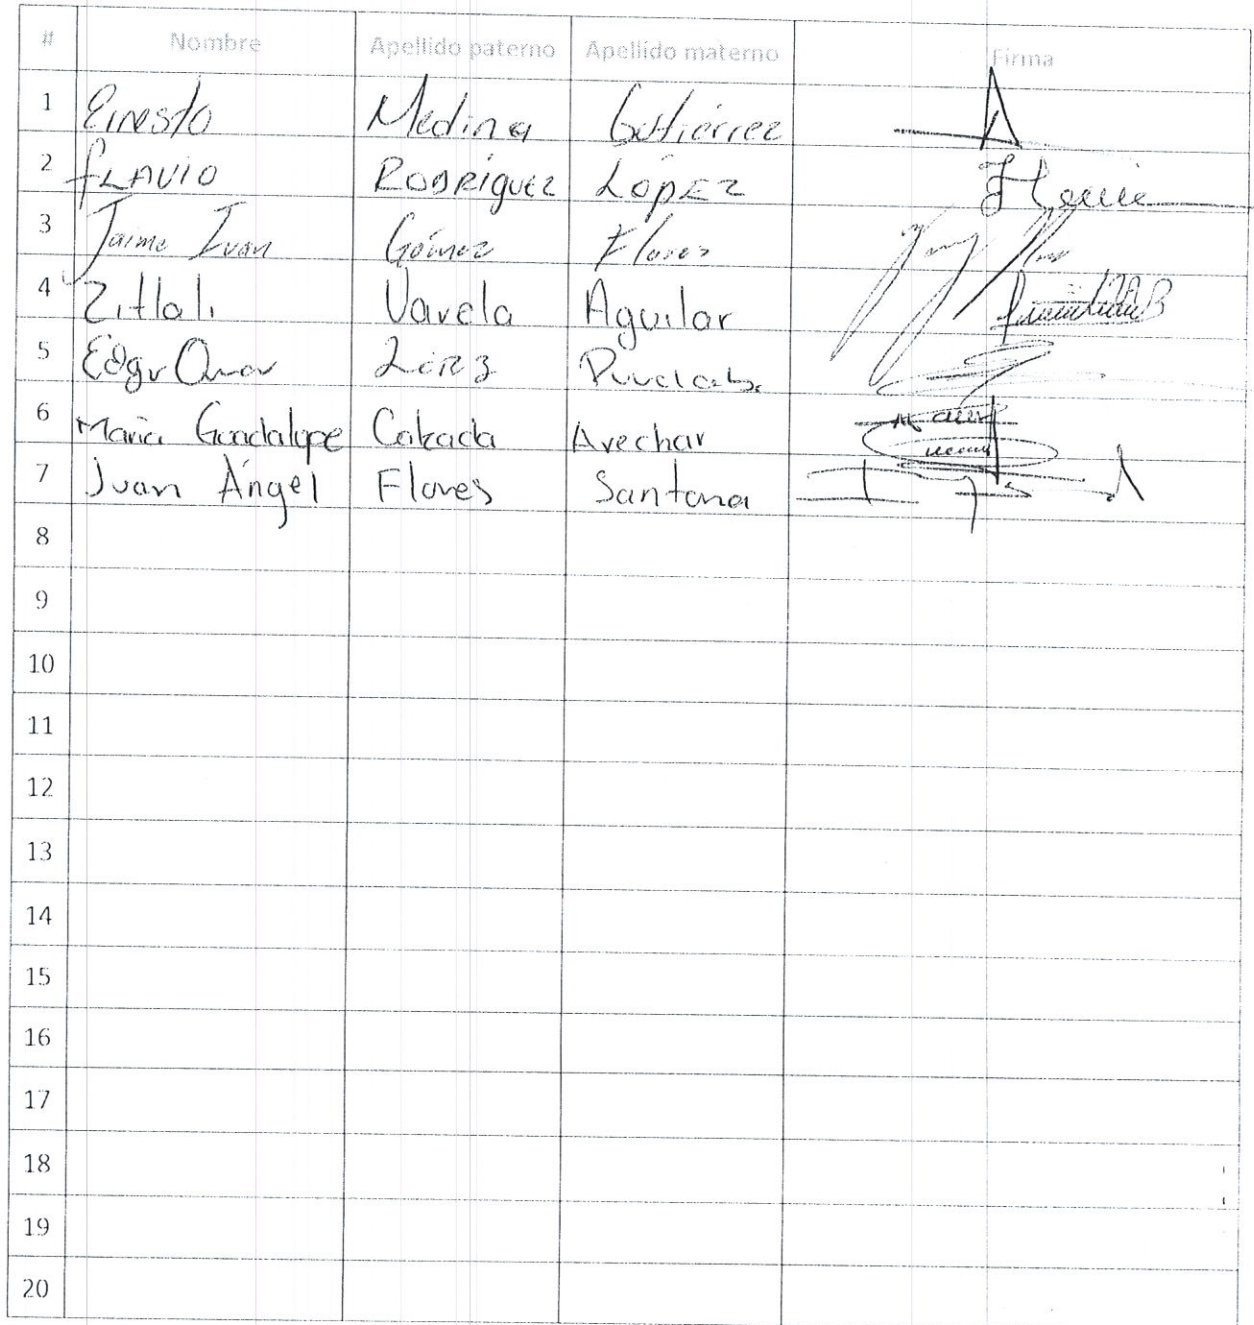 # Nombre Apellido paterno Apellido materno Firma
1 Ernesto Medina Gutiérrez
2 FLAVIO RODRÍGUEZ LÓPEZ
3 Jaime Ivan Gómez Flores
4 Zitlali Varela Aguilar
5 Edgr Omar
6 María Guadalupe Calzada Arechar
7 Juan Ángel Flores Santana
8
9
10
11
12
13
14
15
16
17
18
19
20